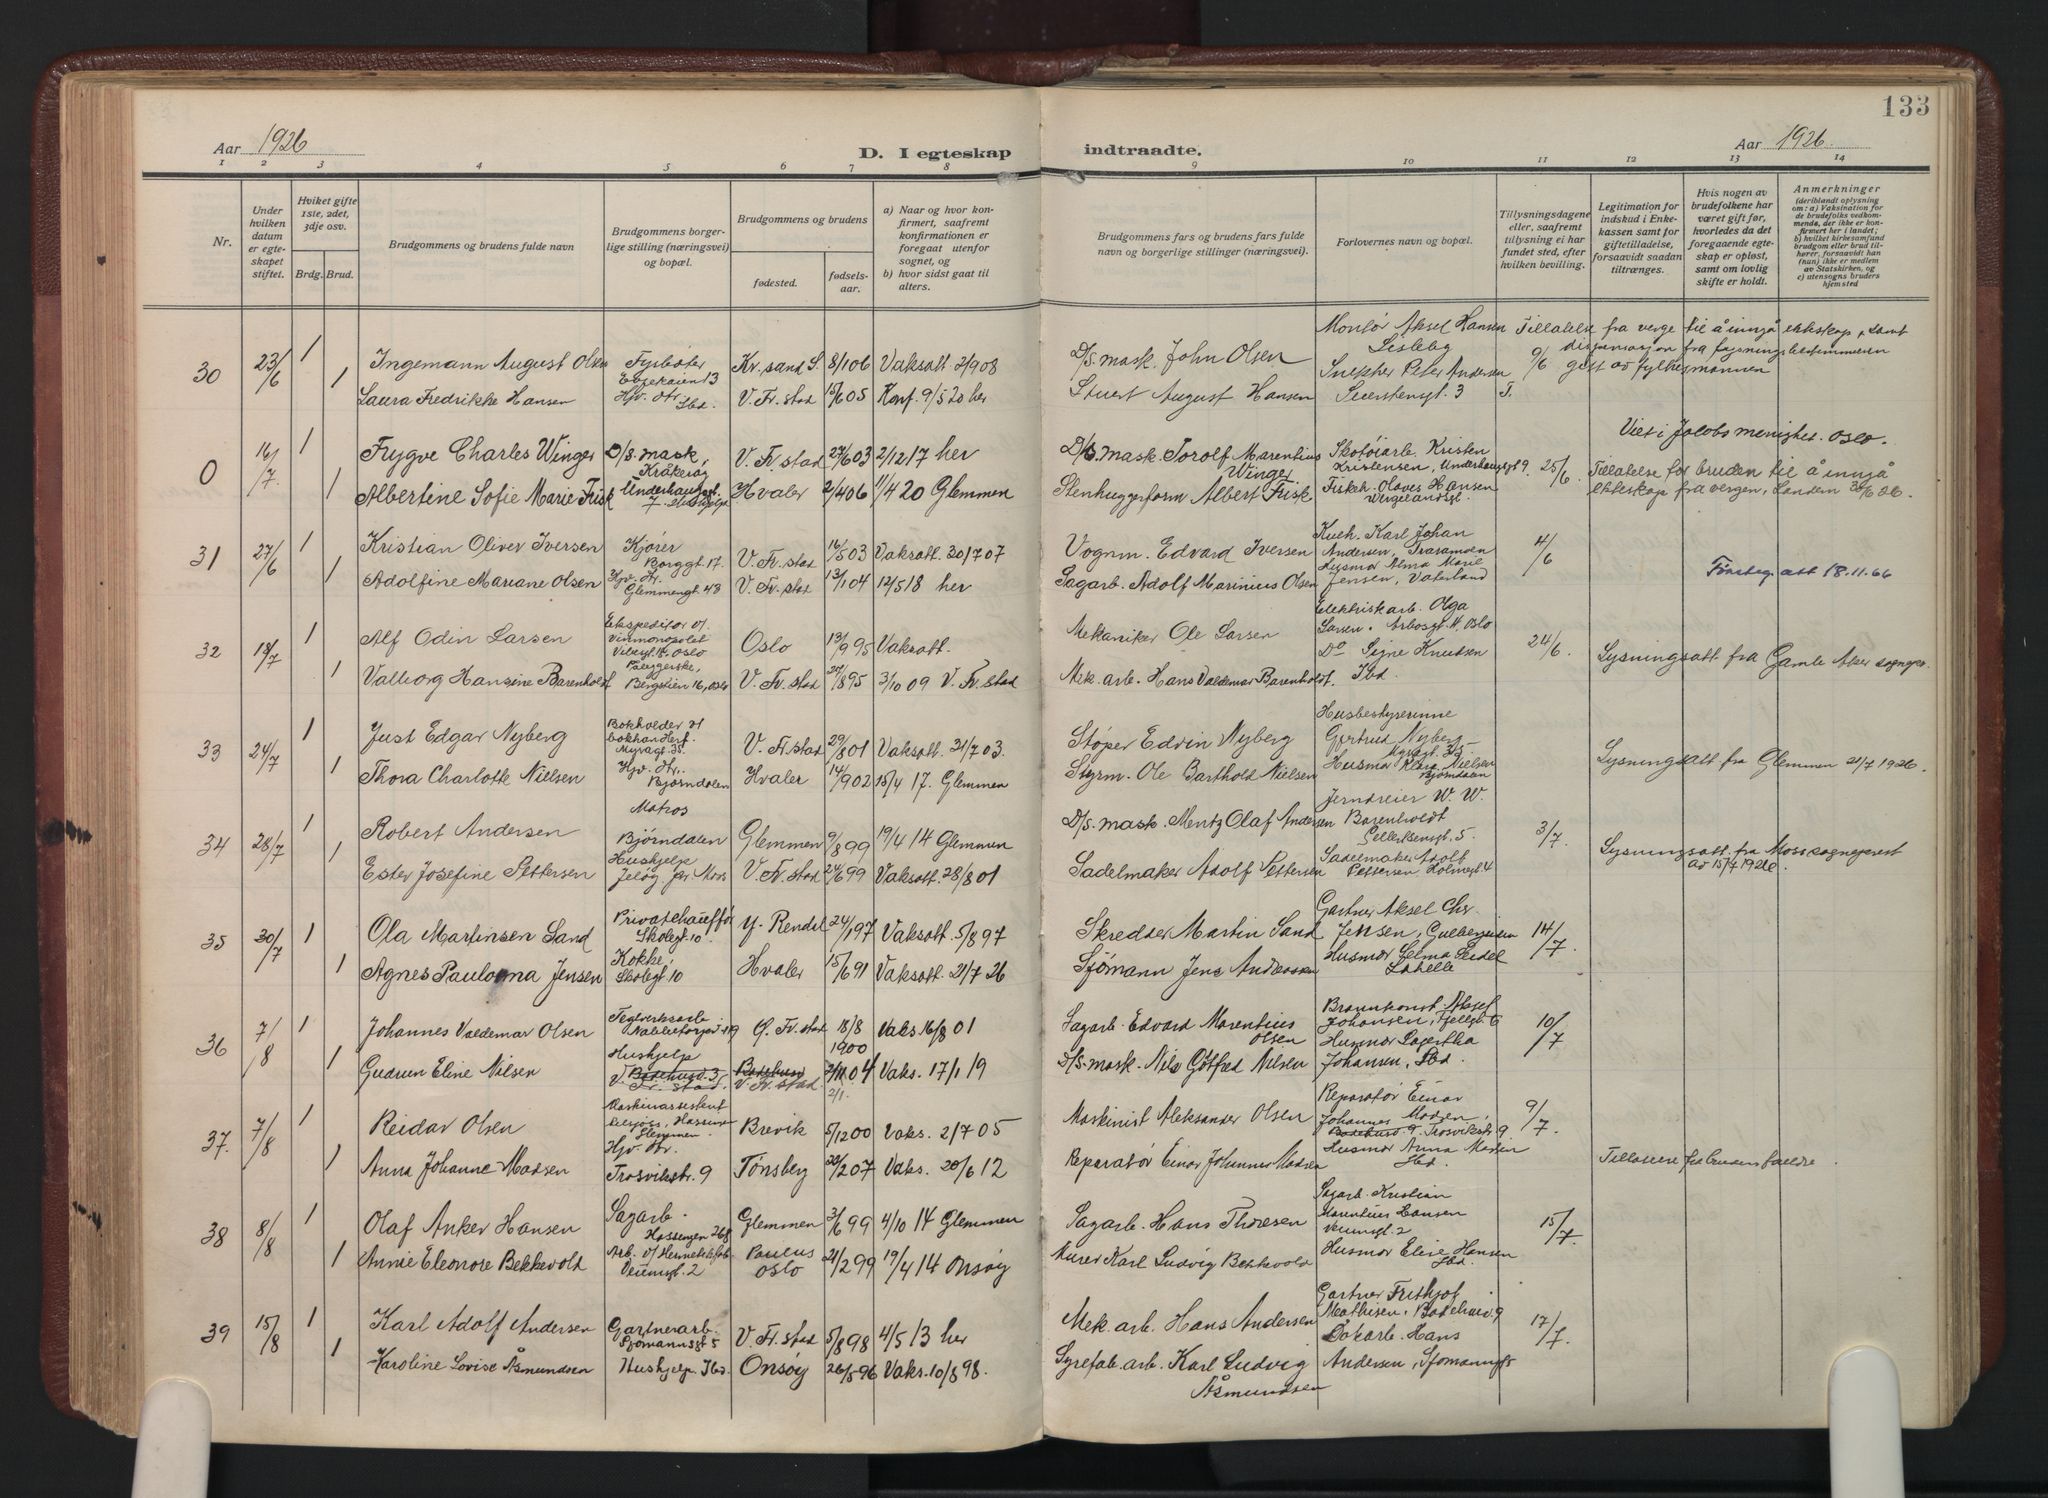 133
Aar 1926
D. I egteskap indtraadte.
Aar 1926.
1 2 3 4 5 6 7 8 9 10 11 12 13 14
Nr.
Under hvilken datum er egteskapet stiftet.
Hviket gifte 1ste, 2det, 3dje osv.
Brdg. Brud.
Brudgommens og brudens fulde navn
Brudgommens borgerlige stilling (næringsvei) og bopæl.
Brudgommens og brudens
fødested.
fødselsaar.
a) Naar og hvor konfirmert, saafremt konfirmationen er foregaat utenfor sognet, og
b) hvor sidst gaat til alters.
Brudgommens fars og brudens fars fulde navn og borgerlige stillinger (næringsvei).
Forlovernes navn og bopæl.
Tillysningsdagene eller, saafremt tilysning ei har fundet sted, efter hvilken bevilling.
Legitimation for indskud i Enkekassen samt for giftetilladelse, forsaavidt saadan tiltrænges.
Hvis nogen av brudefolkene har været gift før, hvorledes da det foregaaende egteskap er opløst, samt om lovlig skifte er holdt.
Anmerkninger (deriblandt oplysning om: a) Vaksination for de brudefolks vedkommende, der ikke er konfirmert her i landet; b) hvilket kirkesamfund brudgom eller brud tilhører, forsaavidt han (hun) ikke er medlem av Statskirken, og c) utensogns bruders hjemsted
30 23/6 1 Ingemann August Olsen Fyrbøter Kr. sand S. 8/106 Vaksatt 2/908 D/S. mask. John Olsen Montør Aksel Hansen Lisleby 9/6 Tillatelse fra verge til å inngå ekteskap, samt dispensasjon fra lysningsbestemmelsen gitt av fylkesmannen
1 Laura Fredrikke Hansen Hjv. dtr. Ibd. V. Fr. stad 15/605 Konf. 9/5 20 her Stuert August Hansen Snekker Peter Andersen
0 16/7 1 Trygve Charles Winger D/S. mask, Kråkerøy V. Fr. stad 27/603 2/12 17 her D/S mask. Torolf Marentius Winger Skotøiarb. Kristen Kristensen, 25/6 Viet i Jacobs menighet. Oslo.
1 Albertine Sofie Marie Frisk Hvaler 2/406 11/4 20 Glemmen Stenhuggerform Albert Frisk Olaves Hansen Vergelandsgt. Tillatelse for bruden til å inngå ekteskap fra vergen,
31 27/6 1 Kristian Oliver Iversen Kjører Borggt. 17. V. Fr. stad 16/503 Vaksatt. 20/7 07 Vognm. Edvard Iversen Karl Johan Andersen, 4/6
1 Adolfine Mariane Olsen Hjv. dtr. Glemmengt. 43 V. Fr. stad 13/104 12/5 18 her Sagarb. Adolf Marinius Olsen Husmor Alma Marie Jensen, Vaterland 18.11.66
32 18/7 1 Alf Odin Larsen Ekspeditør v/ Vinmonopolet Oslo Oslo 13/9 95 Vaksatt. Mekaniker Ole Larsen Elektriskarb. Olga Larsen. Oslo 24/6 Lysningsatt fra Gamle Aker sogneprest.
1 Valborg Hansine Barenholdt Bergstien 16, Oslo V. Fr. stad 25/895 3/10 09 V. Fr. stad Mek. arb. Hans Valdemar Barenholdt. Do Signe Knudsen Ibd.
33 24/7 1 Just Edgar Nyberg Bokholder v/ bokhandler. Myragt. 35. V. Fr. stad 29/801 Vaksatt. 31/7 03. Støper Edvin Nyberg Husbestyrerinne Gertrud Nyberg Myragt. 35 Lysningsatt fra Glemmen 21/7 1926.
1 Thora Charlotte Nielsen Hjv. dtr. Bjørndalen Hvaler 14/902 15/4 17. Glemmen Styrm. Ole Barthold Nielsen Husmor Klara Nielsen
34 28/7 1 Robert Andersen Matros Bjørndalen Glemmen 9/899 19/4 14 Glemmen D/S. mask. Mentz Olaf Andersen Jerndreier W. W. Barenholdt 3/7 Lysningsatt. fra Moss sogneprest av 15/7 1926.
1 Ester Josefine Pettersen Hushjelp Jeløy pr Moss V. Fr. stad 24/699 Vaksatt. 28/8 01 Sadelmaker Adolf Pettersen Sadelmaker Adolf Pettersen Holmegt. 4
35 30/7 1 Ola Martinsen Sand Privatchauffør Skolegt. 10. Y. Rendal 24/197 Vaksatt. 5/8 97 Skredder Martin Sand Gartner Aksel Chr. Jensen, 14/7.
1 Agnes Paulona Jensen Kokke, Skolegt. 10 Hvaler 15/691 Vaksatt. 21/7 26 Sjømann Jens Andreassen Husmor Selma
36 7/8 1 Johannes Valdemar Olsen Teglverksarb. Ø. Fr. stad 18/8 1900 Vaks. 16/8 01 Sagarb. Edvard Marentius Olsen Johansen, 10/7
1 Gudrun Eline Nilsen Hushjelp V. Fr. stad. V. Fr. stad 2/1. 04 Vaks. 17/1 19 D/S. mask. Nils Gotfred Nilsen Husmor Lagertha Johansen, Ibd.
37. 7/8 1 Reidar Olsen Maskinassistent Glemmen. Brevik 5/1200 Vaks. 2/7 05 Maskinist Aleksander Olsen Reparatør Einar Johannes Madsen, Trosvikstr. 9 9/7.
1 Anna Johanne Madsen Hjv. dtr. Trosvikstr. 9 Tønsberg 20/207 Vaks. 20/6 12 Reparatør Einar Johannes Madsen Husmor Anna Madsen Ibd. Tillatelse fra brudens foreldre.
38 8/8 1 Olaf Anker Hansen Sagarb. Hassingen 268 Glemmen 3/699 4/10 14 Glemmen Sagarb. Hans Thoresen Sagarb. Kristian Marentius Hansen Veumgt. 2 15/7.
1 Annie Eleonore Bekkevold Arb. v/ Veumgt. 2 Paulus Oslo 21/299 19/4 14 Onsøy Murer Karl Ludvig Bekkevold Husmor Elise Hansen Ibd.
39 15/8 1 Karl Adolf Andersen Gartnerarb. Sjømannsgt 5 V. Fr. stad 5/898 4/5 13 her Mek. arb. Hans Andersen Gartner Frithjof Mathisen, 17/7.
1 Karoline Lovise Åsmundsen Hushjelp. Ibd. Onsøy 26/596 Vaks. 10/8 98. Syrefab. arb. Karl Ludvig Åsmundsen Hans Andersen, Sjømannsgt